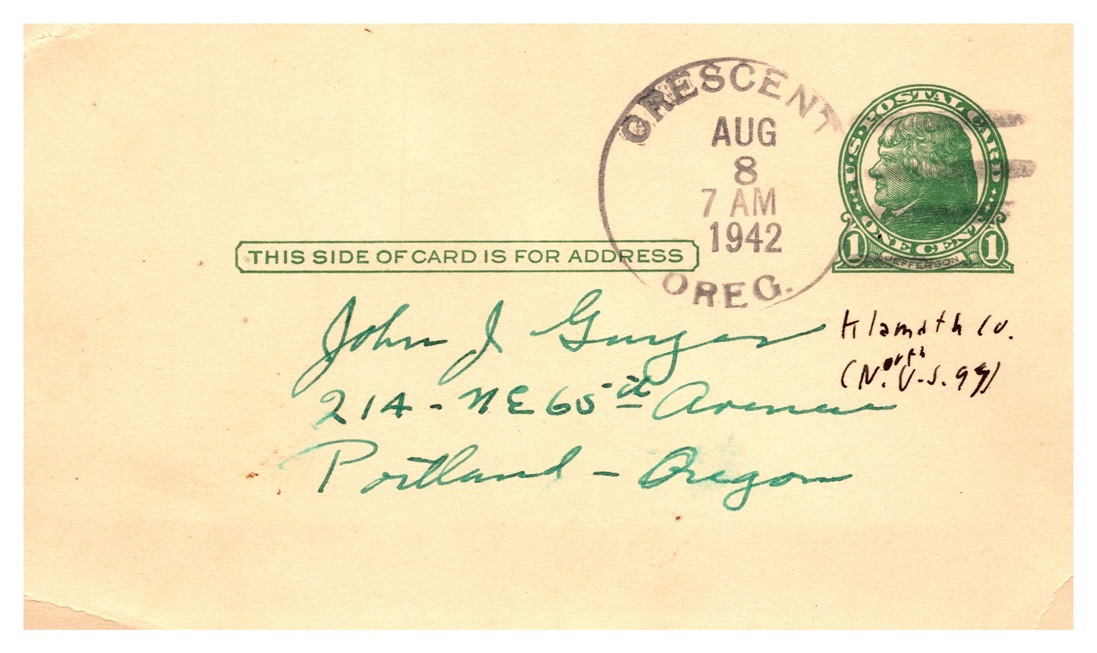 CRESCENT
AUG
8
7 AM
1942
OREG.
U.S. POSTAL CARD
ONE CENT
1 JEFFERSON 1
THIS SIDE OF CARD IS FOR ADDRESS
John J
214 - NE 65th Avenue
Portland - Oregon
Klamath Co.
(North U.S. 99)